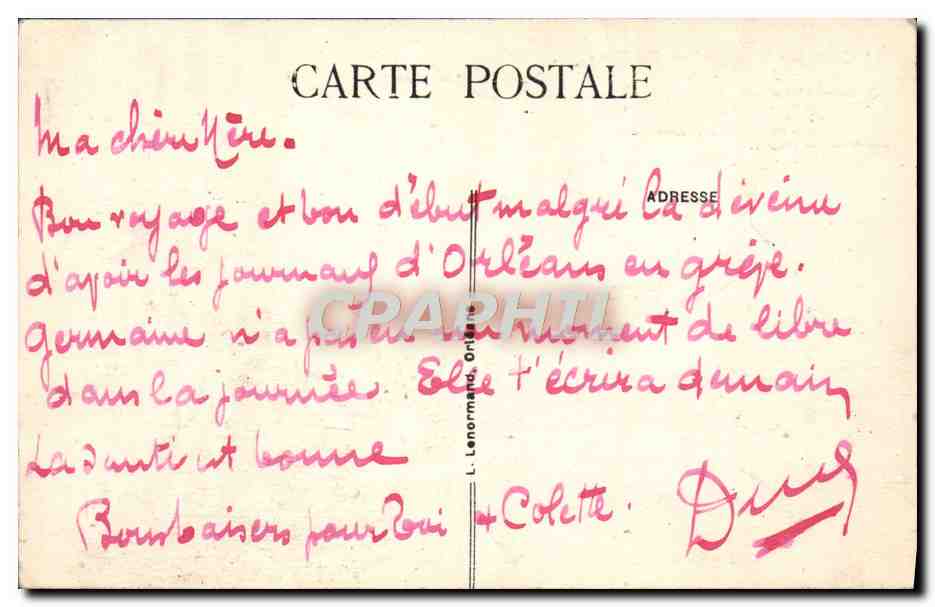 CARTE POSTALE
Ma chère Mère.
Bon voyage et bon début malgré la déveine
ADRESSE
d'avoir les journaux d'Orléans en grève.
Germaine n'a pas eu un moment de libre
dans la journée. Elle t'écrira demain
La santé est bonne
Bons baisers pour Toi & Colette.
L. Lenormand, Orléans
CPARHTI